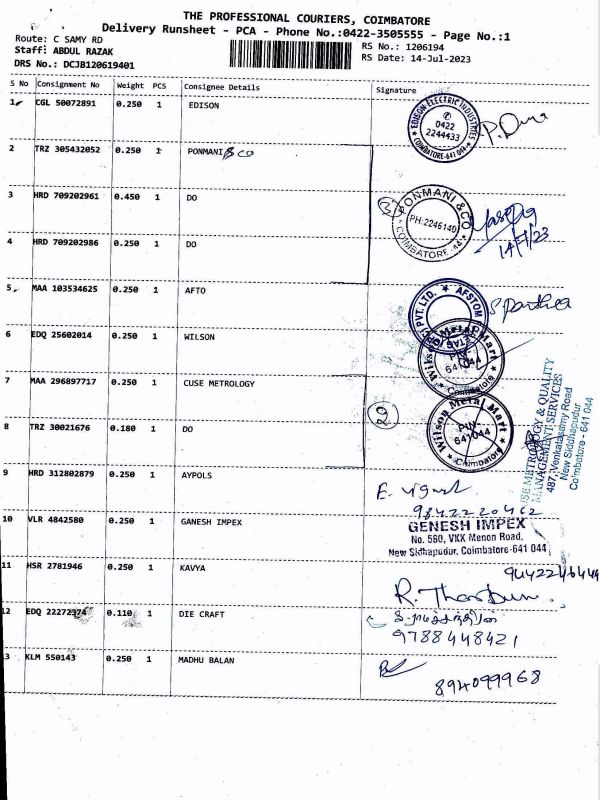 THE PROFESSIONAL COURIERS, COIMBATORE
Delivery Runsheet - PCA - Phone No.:0422-3505555 - Page No.:1
Route: C SAMY RD
RS No.: 1206194
Staff: ABDUL RAZAK
RS Date: 14-Jul-2023
DRS No.: DCJB120619401
S No Consignment No Weight PCS Consignee Details Signature
1 CGL 50072891 0.250 1 EDISON
EDISON ELECTRIC INDUSTRIES
0422
2244433
COIMBATORE-641 044
2 TRZ 305432052 0.250 1 PONMANI & CO
3 HRD 709202961 0.450 1 DO
3
PONMANI & CO
PH:2246140
COIMBATORE-44
14/7/23
4 HRD 709202986 0.250 1 DO
5 MAA 103534625 0.250 1 AFTO
PVT. LTD. ★ AFSTOM
6 EDQ 25602014 0.250 1 WILSON
Wilson Metal Mart
PIN-
641044
Coimbatore
7 MAA 296897717 0.250 1 CUSE METROLOGY
8 TRZ 30021676 0.180 1 DO
20
Wilson Metal Mart
PIN-
641044
Coimbatore
USE METROLOGY & QUALITY
MANAGEMENT SERVICES
487, Venkatasamy Road
New Siddhapudur
Coimbatore - 641 044
9 HRD 312802879 0.250 1 AYPOLS
E. Vignesh
9842220462
10 VLR 4842580 0.250 1 GANESH IMPEX
GENESH IMPEX
No. 560, VKK Menon Road,
New Sidhapudur, Coimbatore-641 044
11 HSR 2781946 0.250 1 KAVYA
12 EDQ 22272374 0.110 1 DIE CRAFT
9788448421
13 KLM 550143 0.250 1 MADHU BALAN
894099968